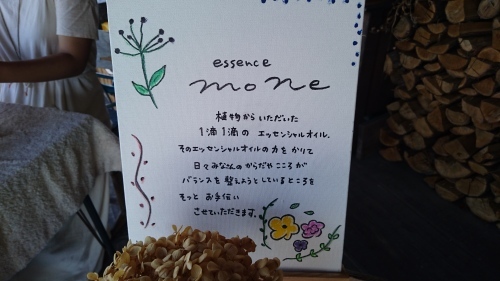 essence
mone
植物からいただいた
1滴1滴の エッセンシャルオイル。
そのエッセンシャルオイルの力をかりて
日々みなさんのからだやこころが
バランスを整えようとしているところを
そっと お手伝い
させていただきます。